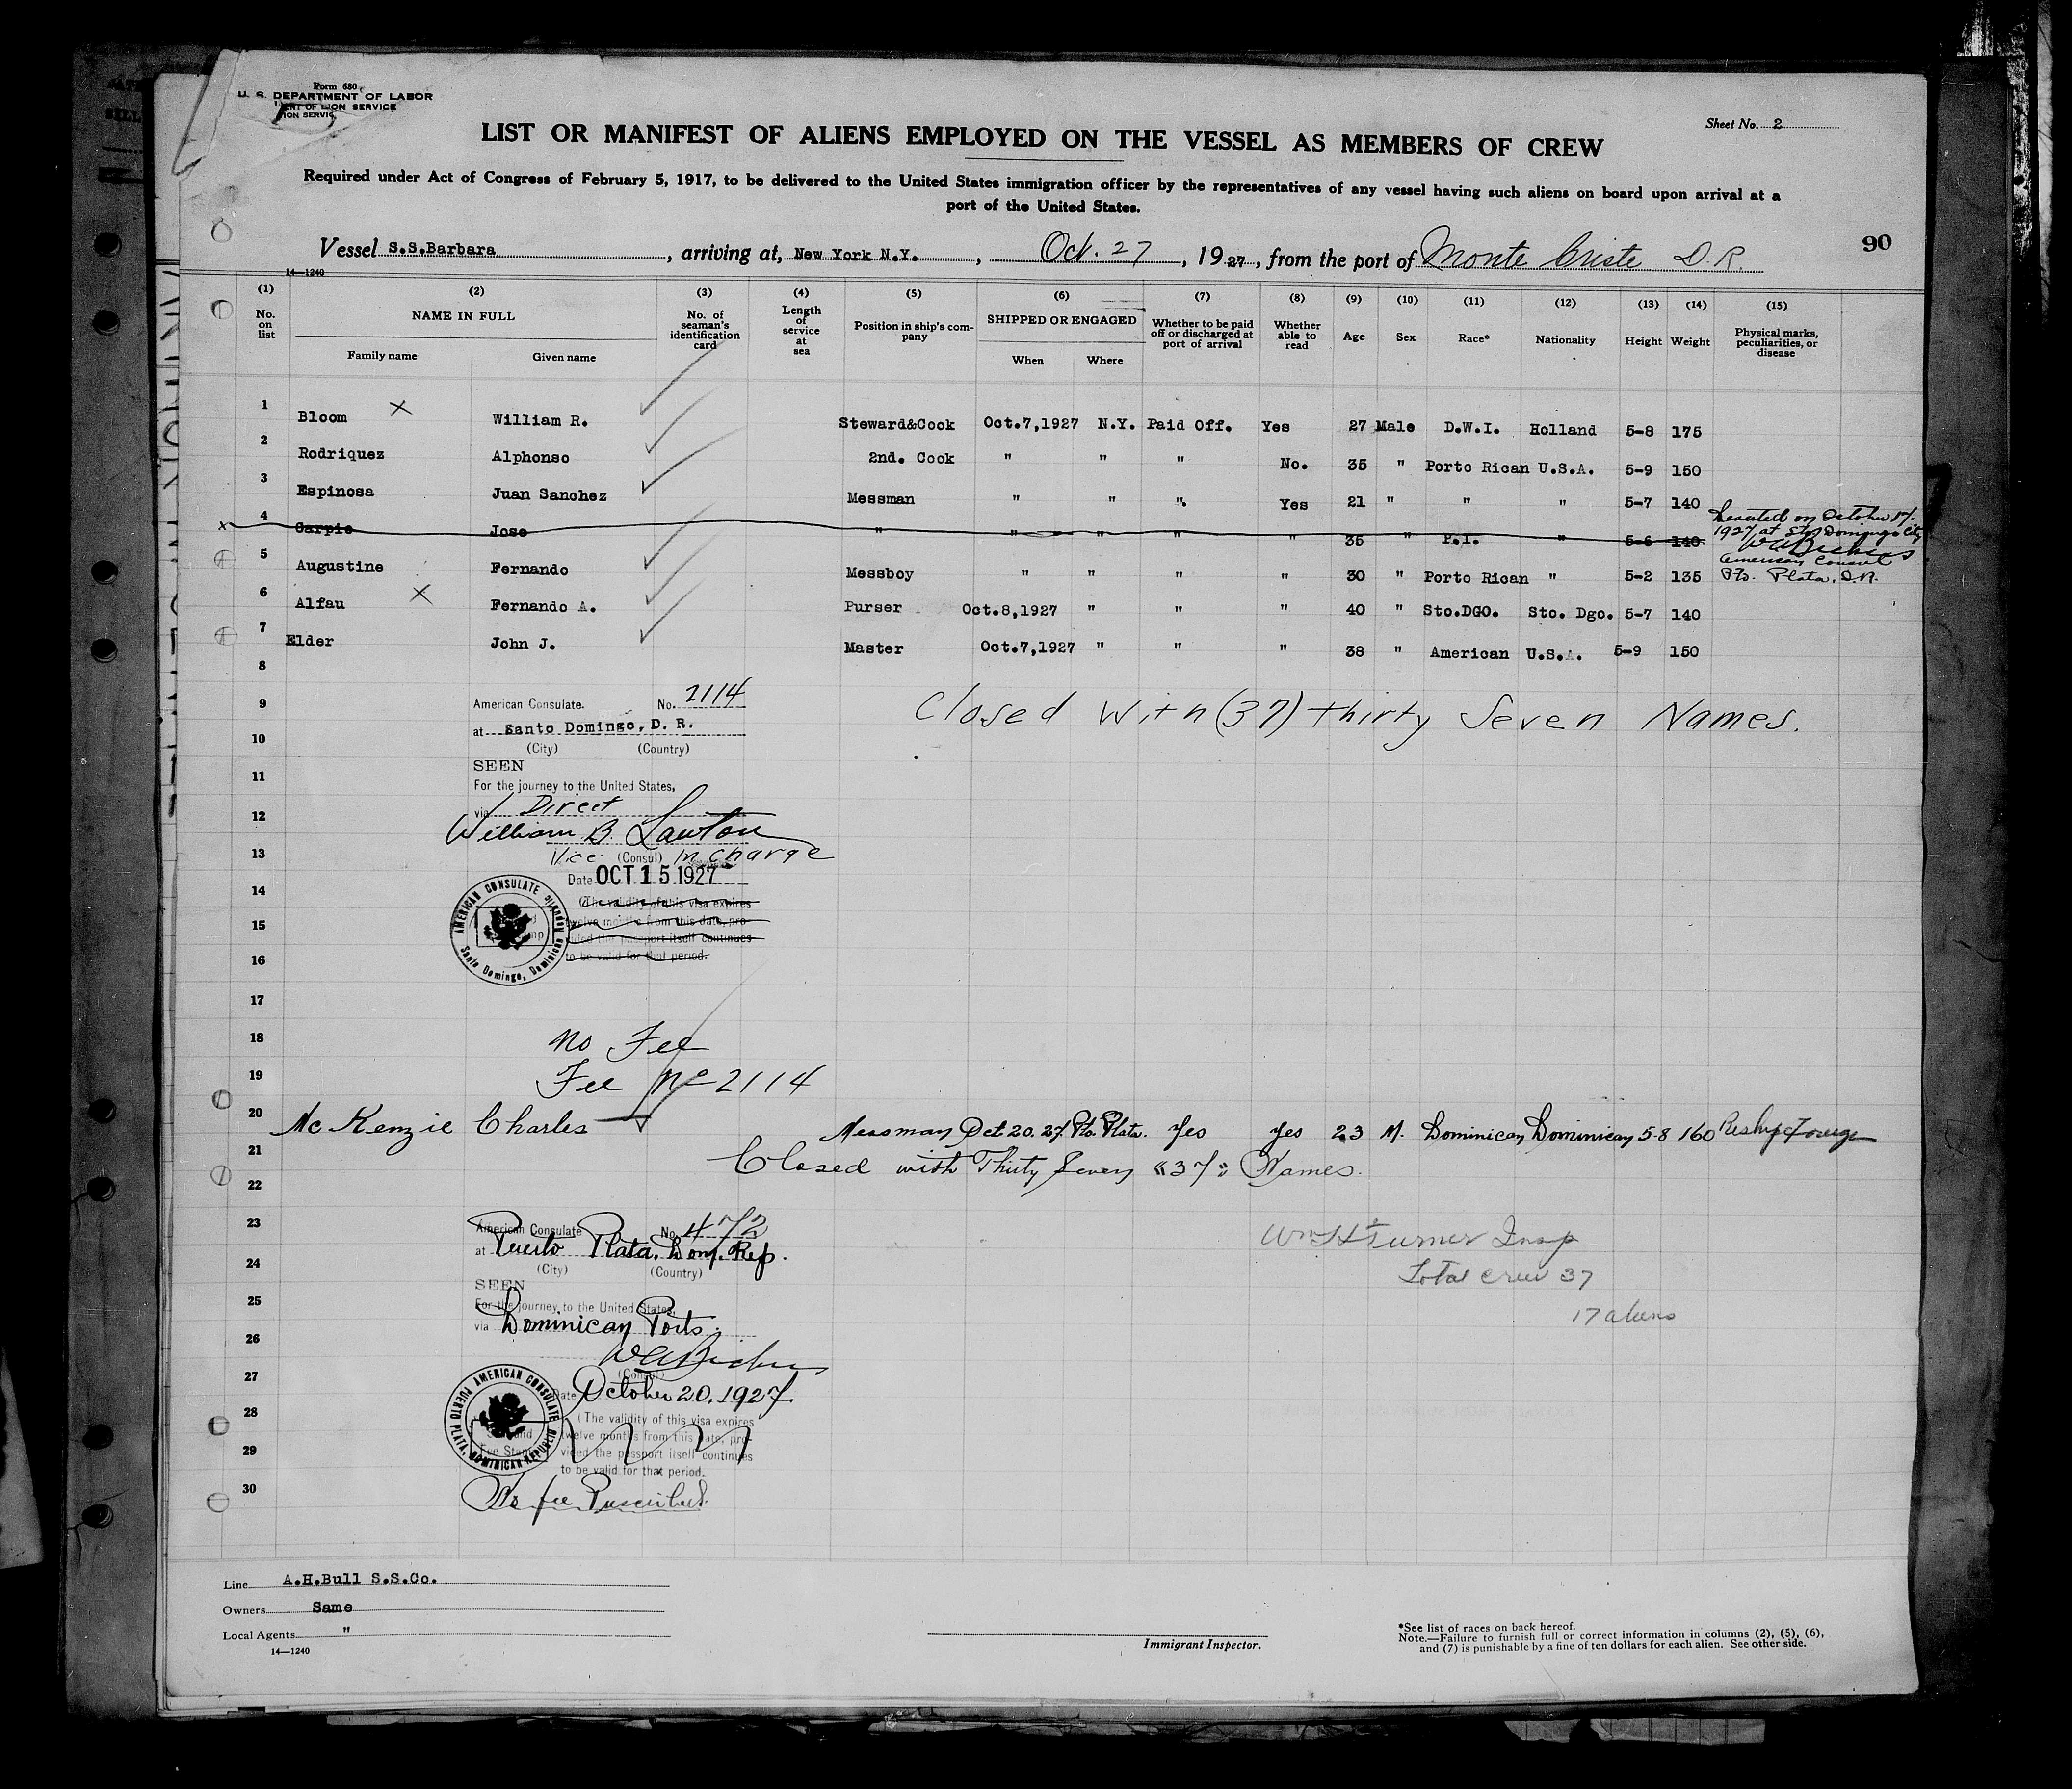 Form 680
U. S. DEPARTMENT OF LABOR
ION SERVICE
LIST OR MANIFEST OF ALIENS EMPLOYED ON THE VESSEL AS MEMBERS OF CREW
Sheet No. 2
Required under Act of Congress of February 5, 1917, to be delivered to the United States immigration officer by the representatives of any vessel having such aliens on board upon arrival at a
port of the United States.
Vessel S.S.Barbara, arriving at, New York N.Y., Oct. 27, 1927, from the port of Monte Criste D.R.
90
14—1240
(1) (2) (3) (4) (5) (6) (7) (8) (9) (10) (11) (12) (13) (14) (15)
No. on list NAME IN FULL No. of seaman's identification card Length of service at sea Position in ship's com- pany SHIPPED OR ENGAGED Whether to be paid off or discharged at port of arrival Whether able to read Age Sex Race* Nationality Height Weight Physical marks, peculiarities, or disease
Family name Given name When Where
1 Bloom X William R. Steward&Cook Oct.7,1927 N.Y. Paid Off. Yes 27 Male D.W.I. Holland 5-8 175
2 Rodriquez Alphonso 2nd. Cook " " " No. 35 " Porto Rican U.S.A. 5-9 150
3 Espinosa Juan Sanchez Messman " " ". Yes 21 " " " 5-7 140
x 4 Carpio Jose " " " " " 35 " P.I. " 5-6 140
Deserted on October 17.
1927 at Sto Domingo City
American Consul
Pto. Plata, D.R.
5 Augustine Fernando Messboy " " " " 30 " Porto Rican " 5-2 135
6 Alfau X Fernando A. Purser Oct.8,1927 " " " 40 " Sto.DGO. Sto. Dgo. 5-7 140
7 Elder John J. Master Oct.7,1927 " " " 38 " American U.S.A. 5-9 150
8
9 American Consulate. No. 2114
Closed With (37) thirty Seven Names.
at Santo Domingo, D. R.
10 (City) (Country)
SEEN
11 For the journey to the United States,
12 via Direct
William B. Lawton
13 Vice (Consul) in charge
Date OCT 15 1927
14 (The validity of this visa expires
15 twelve months from this date, pro-
vided the passport itself continues
16 to be valid for that period.
AMERICAN CONSULATE Santo Domingo, Dominican Republic
17
18 No Fee
19 Fee No 2114
20 McKenzie Charles Messman Oct 20. 27. Pto. Plata. Yes yes 23 M. Dominican Dominican 5-8 160 Reship Foreign
21 Closed with Thirty Seven "37" Names.
22
23 American Consulate No. 472
at Puerto Plata, Dom. Rep.
24 (City) (Country)
Wm H Turner Insp
Total crew 37
17 aliens
SEEN
25 For the journey to the United States,
via Dominican Ports.
26
27 (Consul)
Date October 20, 1927
28 (The validity of this visa expires
twelve months from this date, pro-
29 vided the passport itself continues
to be valid for that period.
AMERICAN CONSULATE PUERTO PLATA, DOMINICAN REPUBLIC
30 No fee Prescribed.
Line A.H.Bull S.S.Co.
Owners Same
Local Agents "
14—1240
Immigrant Inspector.
*See list of races on back hereof.
Note.—Failure to furnish full or correct information in columns (2), (5), (6),
and (7) is punishable by a fine of ten dollars for each alien. See other side.